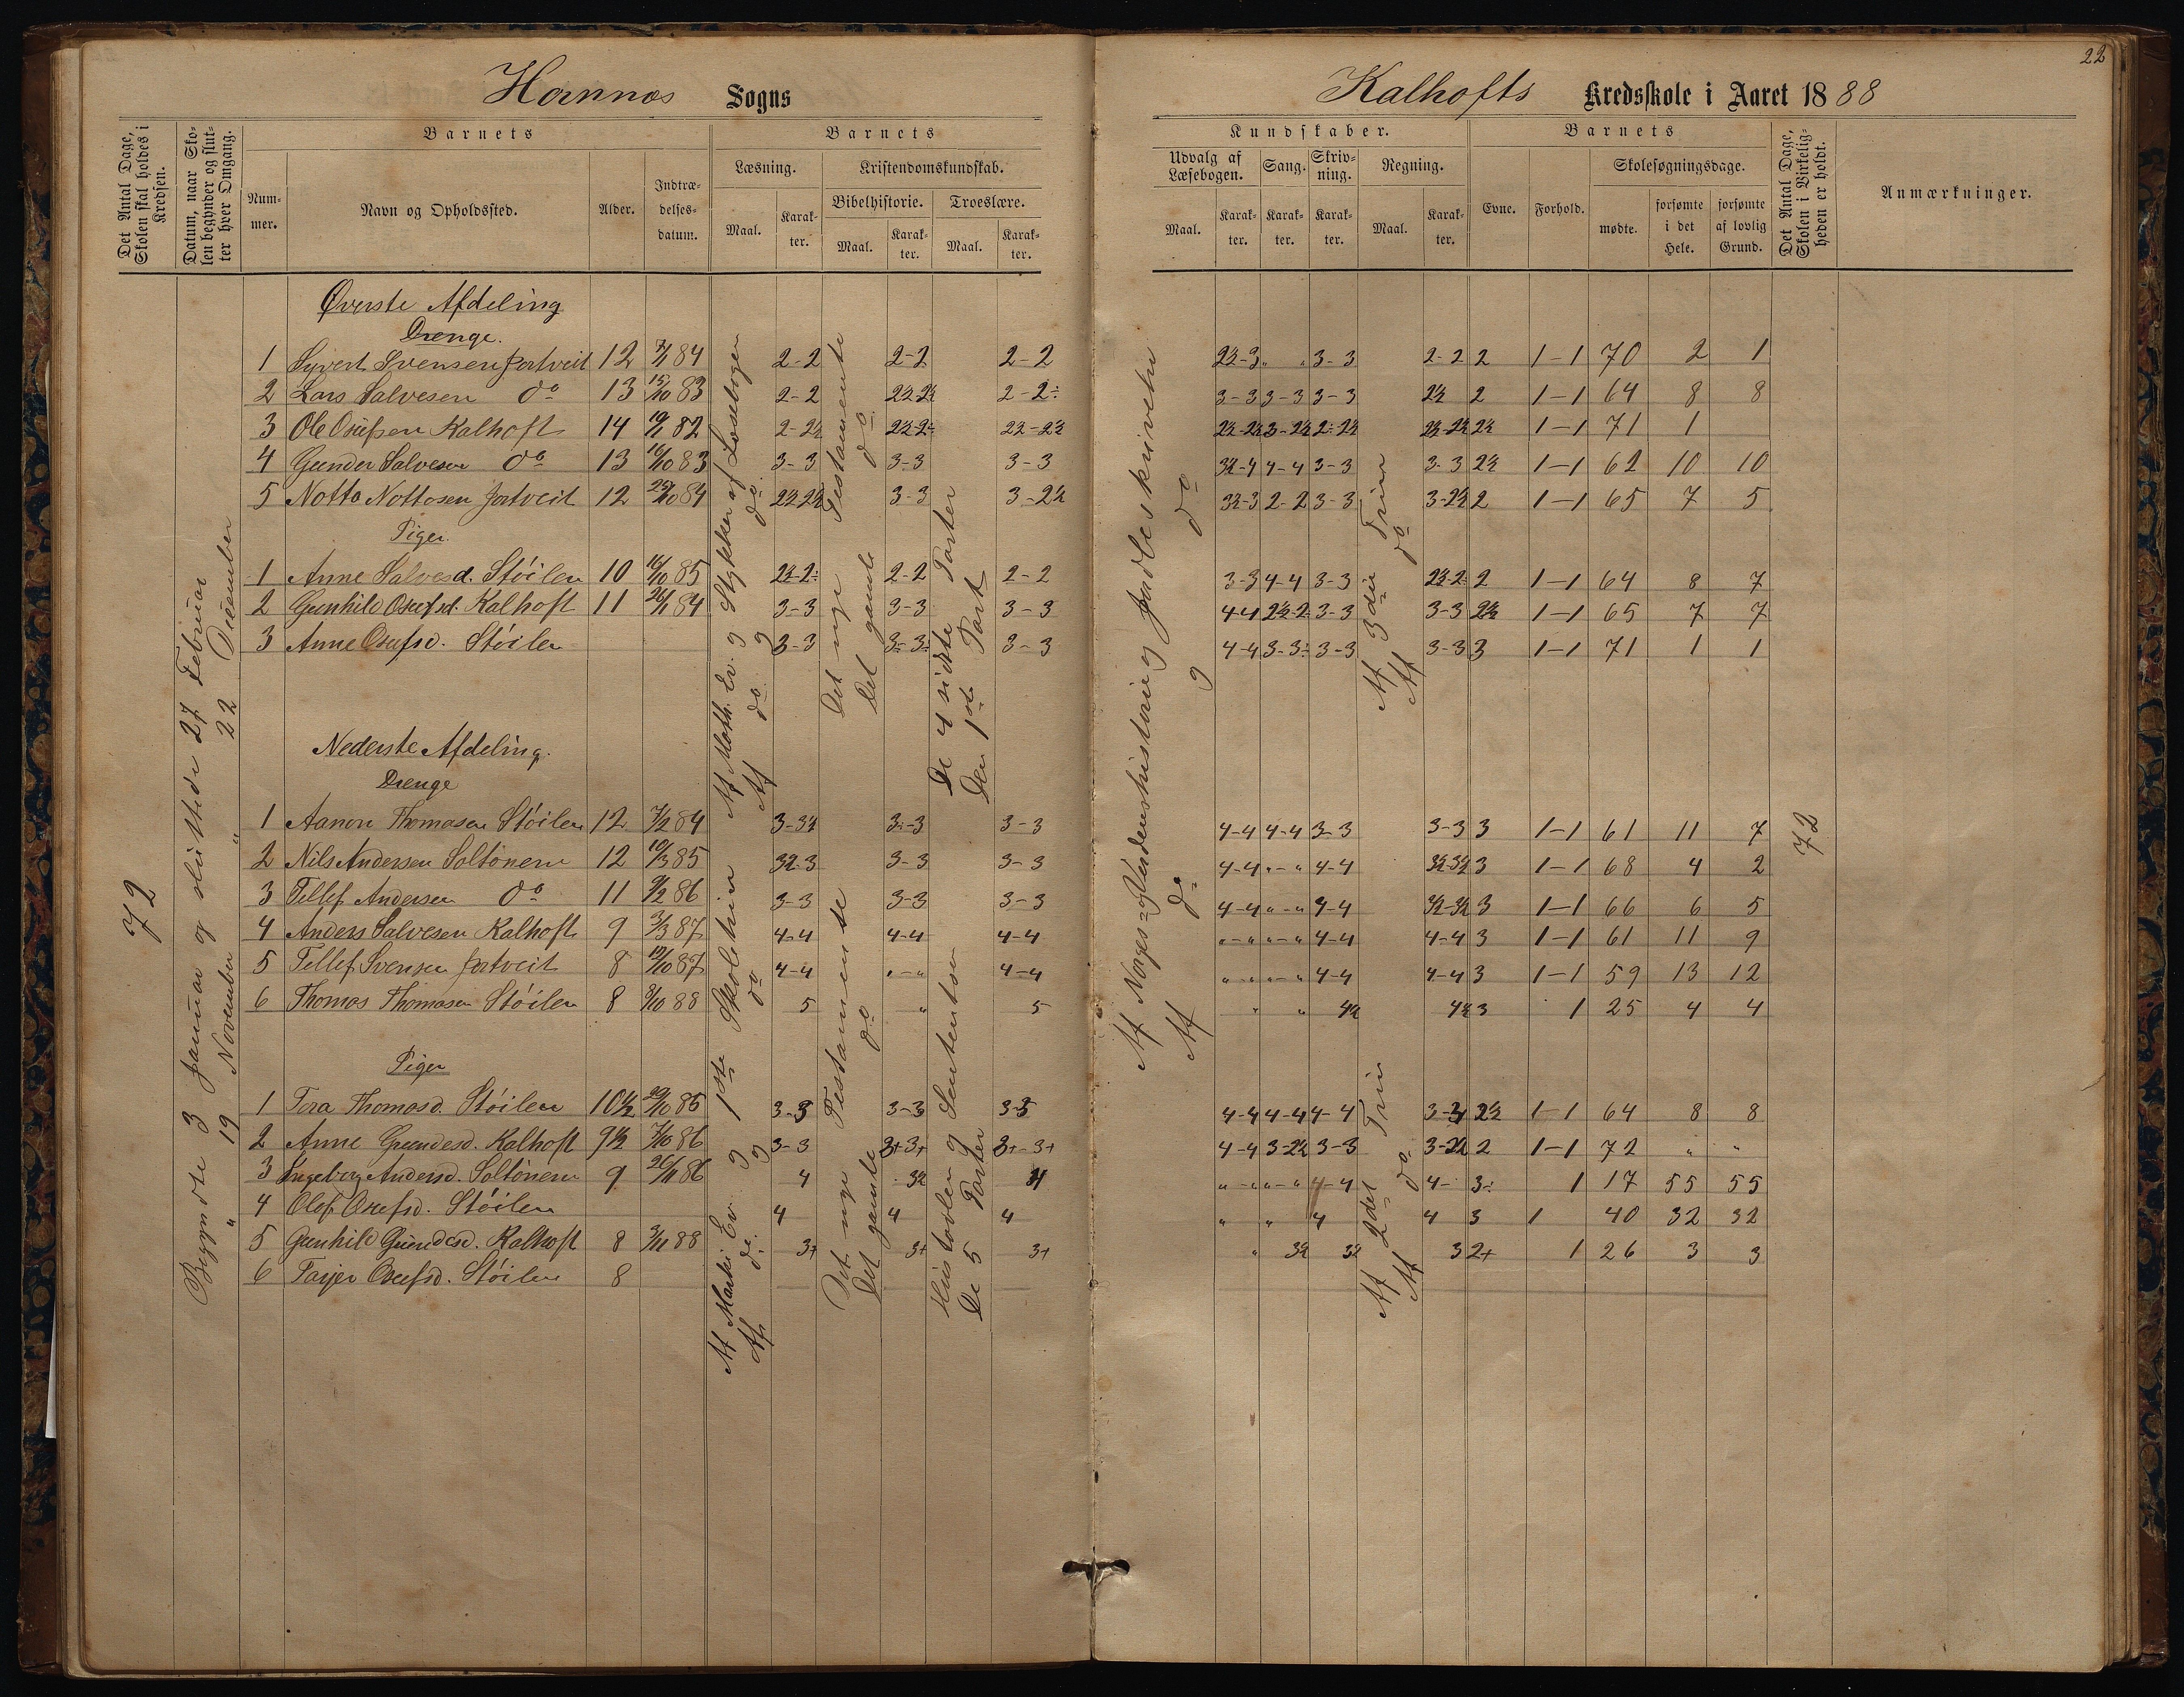 22
Hornnes Sogns
Kalhofts Kredsskole i Aaret 1888
Det Antal Dage, Skolen skal holdes i Kredsen.
Datum, naar Skolen begynder og slutter hver Omgang.
Barnets
Nummer.
Navn og Opholdssted.
Alder.
Indtrædelsesdatum.
Barnets
Læsning.
Maal.
Karakter.
Kristendomskundskab.
Bibelhistorie.
Maal.
Karakter.
Troeslære.
Maal.
Karakter.
Kundskaber.
Udvalg af Læsebogen.
Maal.
Karakter.
Sang.
Karakter.
Skrivning.
Karakter.
Regning.
Maal.
Karakter.
Barnets
Evne.
Forhold.
Skolesøgningsdage.
mødte.
forsømte i det Hele.
forsømte af lovlig Grund.
Det Antal Dage, Skolen i Virkeligheden er holdt.
Anmærkninger.
72
Begyndte 3 Januar og sluttede 27 Februar
" 19 November " 22 December
Øverste Afdeling
Drenge.
1 Syvert Svensen Jortveit 12 84 2-2 2-2 2-2 2½-3 " " 3-3 2-2 2 1-1 70 2 1
2 Lars Salvesen do 13 15/10 83 2-2 2½-2½ 2-2÷ 3-3 3-3 3-3 2½ 2 1-1 64 8 8
3 Ole Osufsen Kalhoft 14 82 2-2½ 2½-2÷ 2½-2½ 2½-2½ 3-2½ 2÷2½ 2½-2½ 2½ 1-1 71 1
4 Gunder Salvesen do 13 16/10 83 3-3 3-3 3-3 3½-4 4-4 3-3 3-3 2½ 1-1 62 10 10
5 Notto Nottosen Jortveit 12 84 2½-2½ 3-3 3-2½ 3½-3 2-2 3-3 3-2½ 2 1-1 65 7 5
Piger.
1 Anne Salvesd. Støilen 10 16/10 85 2½-2÷ 2-2 2-2 3-3 4-4 3-3 2½-2÷ 2 1-1 64 8 7
2 Gunhild Osufsd. Kalhoft 11 84 3-3 3-3 3-3 4-4 2½-2÷ 3-3 3-3 2½ 1-1 65 7 7
3 Anne Osufsd. Støilen 3-3 3-3÷ 3-3 4-4 3-3÷ 3-3 3-3 3 1-1 71 1 1
Af Math. Ev. og Stykker af Læsebogen
Af do og do
Det nye Testamente
Det gamle do
De 4 sidste Parter
Den 1ste Part
Af Norges- og Verdenshistorie og Jordbeskrivelse
Af do og do
Af 3die Trin
Af do
Nederste Afdeling.
Drenge
1 Aanon Thomasen Støilen 12 7/2 84 3-3½ 3-3 3-3 4-4 4-4 3-3 3-3 3 1-1 61 11 7
2 Nils Andersen Soltønen 12 10/3 85 3½-3 3-3 3-3 4-4 "-" 4-4 3½-3½ 3 1-1 68 4 2
3 Tellef Andersen do 11 9/2 86 3-3 3-3 3-3 4-4 "-" 4-4 3½-3½ 3 1-1 66 6 5
4 Anders Salvesen Kalhoft 9 3/3 87 4-4 4-4 4-4 "-" "-" 4-4 4-4 3 1-1 61 11 9
5 Tellef Svensen Jortveit 8 87 4-4 "-" 4-4 "-" "-" 4-4 4-4 3 1-1 59 13 12
6 Thomas Thomasen Støilen 8 88 5 " 5 " " 4½ 4½ 3 1 25 4 4
72
Piger
1 Tora Thomasd. Støilen 10½ 85 3-3 3-3 3-3 4-4 4-4 4-4 3-3½ 2½ 1-1 64 8 8
2 Anne Gundesd. Kalhoft 9½ 7/10 86 3-3 3+3+ 3+-3+ 4-4 3-2½ 3-3 3-2½ 2 1-1 72 " "
3 Ingeborg Andersd. Soltønen 9 26/11 86 4 3½ 4 "-" "-" 4-4 4- 3÷ 1 17 55 55
4 Olof Osufsd. Støilen 4 4 4 " " 4 4 3 1 40 32 32
5 Gunhild Gundesd. Kalhoft 8 3/11 88 3+ 3+ 3+ " 3½ 3½ 3 2+ 1 26 3 3
6 Tarjer Osufsd. Støilen 8
Af Marki Ev. og 1ste Skoletrin
Af do. og do
Det nye Testamente
Det gamle do
Hustavlen og Sententser
De 5 Parter
Af 2det Trin
Af do